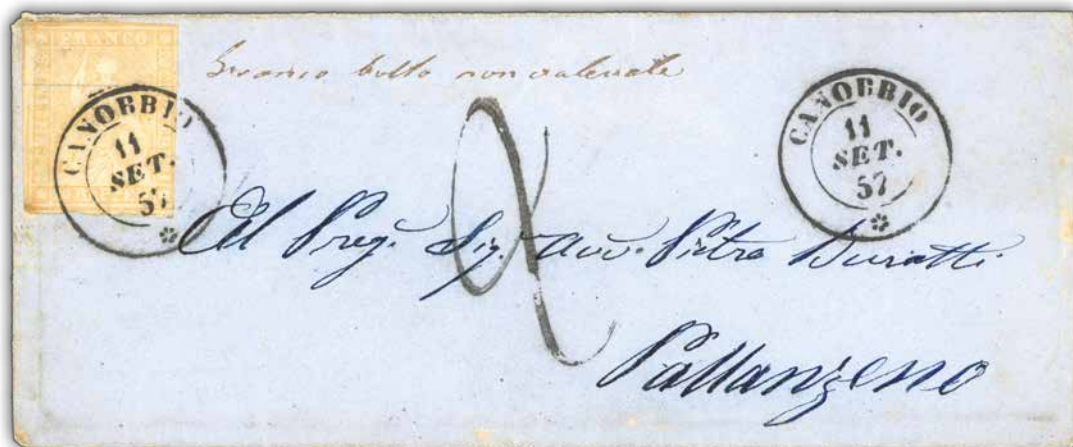 FRANCO
CANOBBIO
11
SET.
57
franco bollo non valevole
CANOBBIO
11
SET.
57
Al Preg. Sig. Avv. Pietro
Pallanzeno